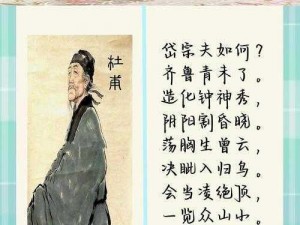 杜甫
岱宗夫如何？
齐鲁青未了。
造化钟神秀，
阴阳割昏晓。
荡胸生曾云，
决眦入归鸟。
会当凌绝顶，
一览众山小。